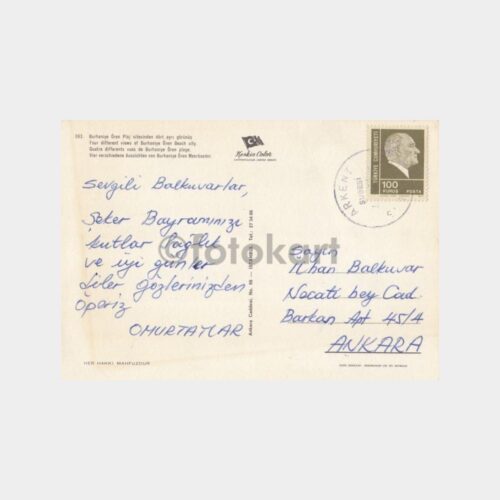 103. Burhaniye Ören Plaj sitesinden dört ayrı görünüş
Four different views of Burhaniye Ören Beach city.
Quatre differents vues de Burhaniye Ören plage.
Vier verschiedene Aussichten von Burhaniye Ören Meerbaden.
Keskin Color
Ankara Caddesi, No. 98 - İSTANBUL Tel.: 27 34 86
ARKENT
TÜRKİYE CUMHURİYETİ
100
KURUŞ POSTA
Sevgili Balkuvarlar,
Şeker Bayramınızı
kutlar sağlık
ve iyi günler
diler gözlerinizden
öperiz
OMURTAYLAR
Sayın
İlhan Balkuvar
Necati bey Cad.
Barkan Apt 45/4
ANKARA
HER HAKKI MAHFUZDUR
©fotokart